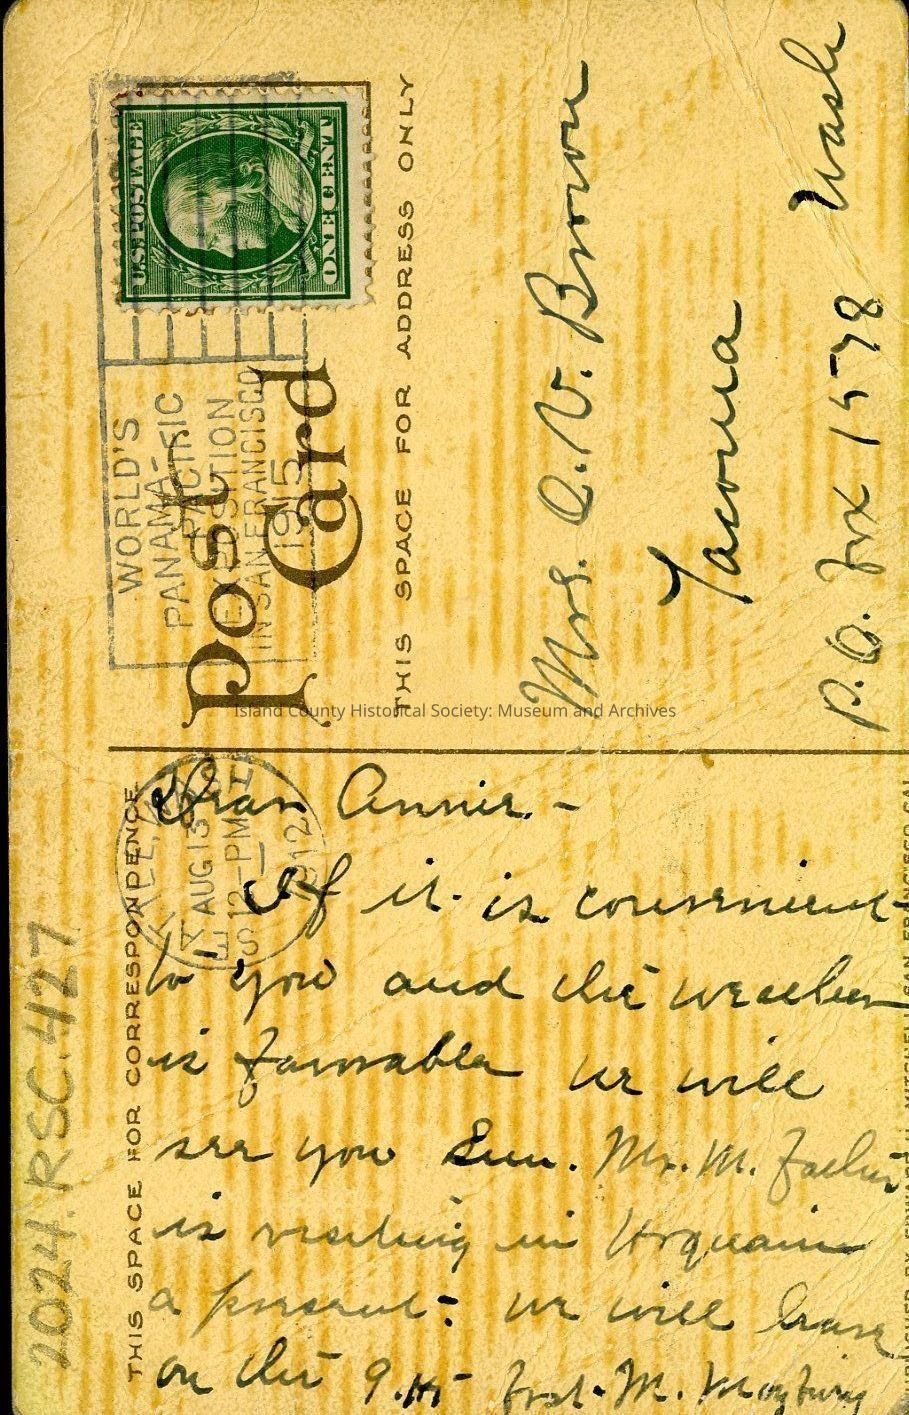 U.S. POSTAGE
ONE CENT
WORLD'S
PANAMA-
PACIFIC
EXPOSITION
IN SAN FRANCISCO
1915
Post
Card
THIS SPACE FOR ADDRESS ONLY
Mrs. C. V. Brown
Tacoma
Wash
P.O. Box 1578
Island County Historical Society: Museum and Archives
THIS SPACE FOR CORRESPONDENCE
SEATTLE
AUG 13
12 - PM
1912
Dear Annie. -
If it is convenient
to you and the weather
is favorable we will
see you Sun. Mr. M. Father
is visiting in Hoquaim
a present - we will leave
on the 9.15 boat - M.
2024.RSC.427
PUBLISHED BY EDWARD H. MITCHELL, SAN FRANCISCO, CAL.